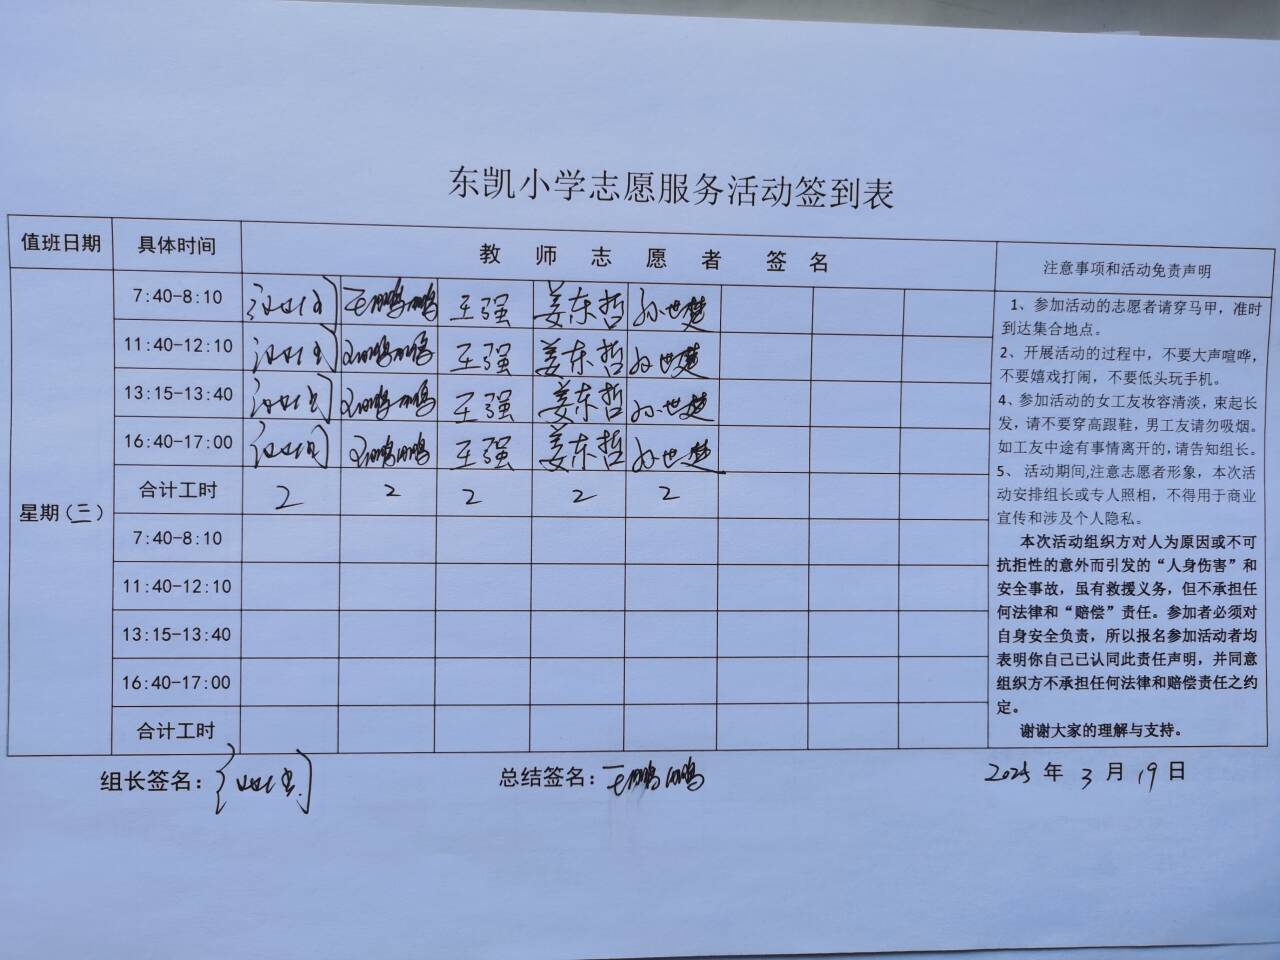 东凯小学志愿服务活动签到表
值班日期 具体时间 教师志愿者签名 注意事项和活动免责声明
星期(三)
7:40-8:10 王鹏鹏 王强 姜东哲 孙世楚
11:40-12:10 王鹏鹏 王强 姜东哲 孙世楚
13:15-13:40 王鹏鹏 王强 姜东哲 孙世楚
16:40-17:00 王鹏鹏 王强 姜东哲 孙世楚
合计工时 2 2 2 2 2
7:40-8:10
11:40-12:10
13:15-13:40
16:40-17:00
合计工时
1、参加活动的志愿者请穿马甲，准时
到达集合地点。
2、开展活动的过程中，不要大声喧哗，
不要嬉戏打闹，不要低头玩手机。
4、参加活动的女工友妆容清淡，束起长
发，请不要穿高跟鞋，男工友请勿吸烟。
如工友中途有事情离开的,请告知组长。
5、活动期间,注意志愿者形象，本次活
动安排组长或专人照相，不得用于商业
宣传和涉及个人隐私。
本次活动组织方对人为原因或不可
抗拒性的意外而引发的“人身伤害”和
安全事故，虽有救援义务，但不承担任
何法律和“赔偿”责任。参加者必须对
自身安全负责，所以报名参加活动者均
表明你自己已认同此责任声明，并同意
组织方不承担任何法律和赔偿责任之约
定。
谢谢大家的理解与支持。
组长签名： 总结签名：王鹏鹏 2025年3月19日